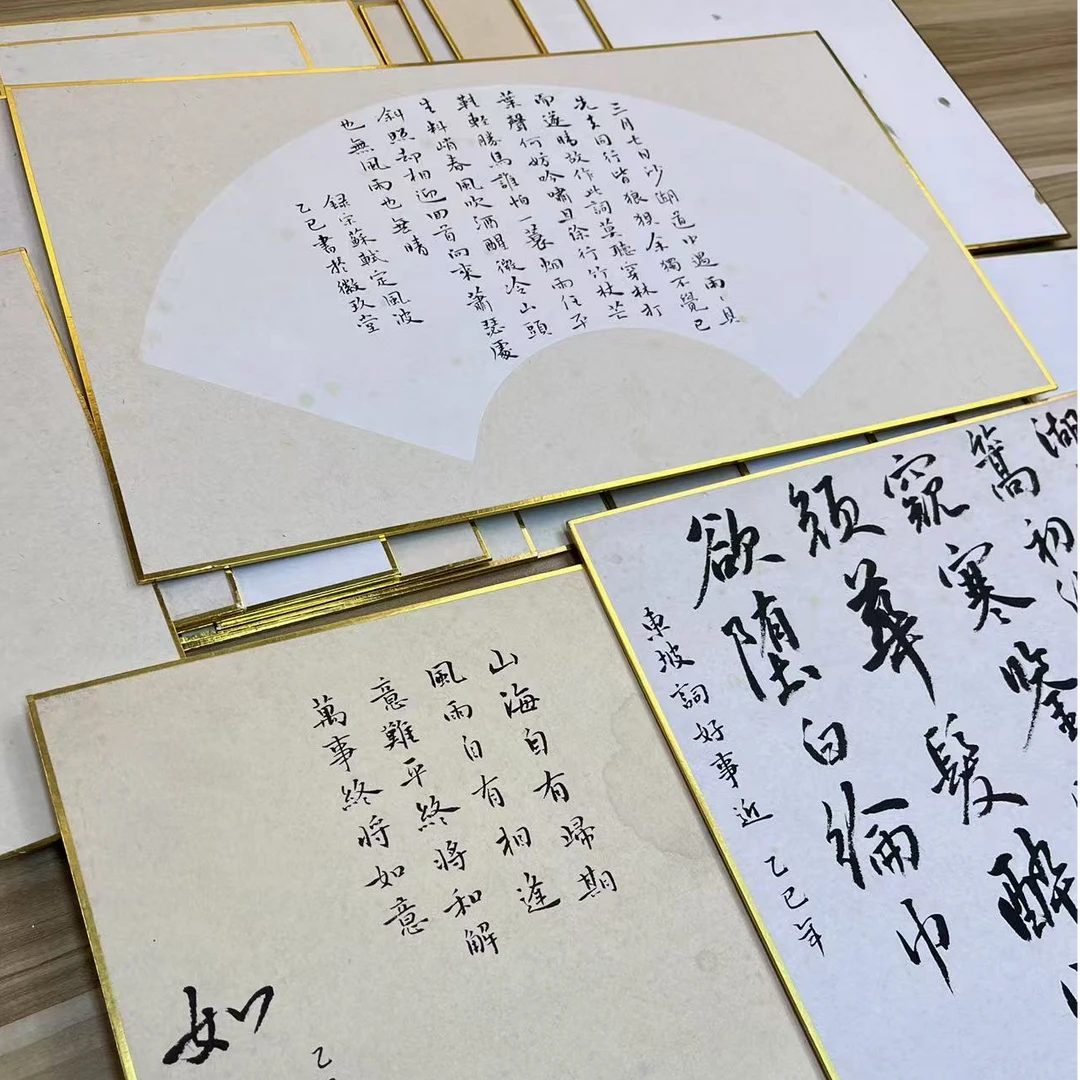 三月七日沙湖道中遇雨〻具
先去同行皆狼狽余獨不覺已
而遂晴故作此詞莫聽穿林打
葉聲何妨吟嘯且徐行竹杖芒
鞋輕勝馬誰怕一蓑烟雨任平
生料峭春風吹酒醒微冷山頭
斜照却相迎回首向來蕭瑟處
也無風雨也無晴
録宋蘇軾定風波
乙巳書於微玖堂
湖
篙初
窺寒鑒
顏華髮醉
欲墮白綸巾
東坡詞好事近 乙巳年
山海自有歸期
風雨自有相逢
意難平終將和解
萬事終將如意
如
乙